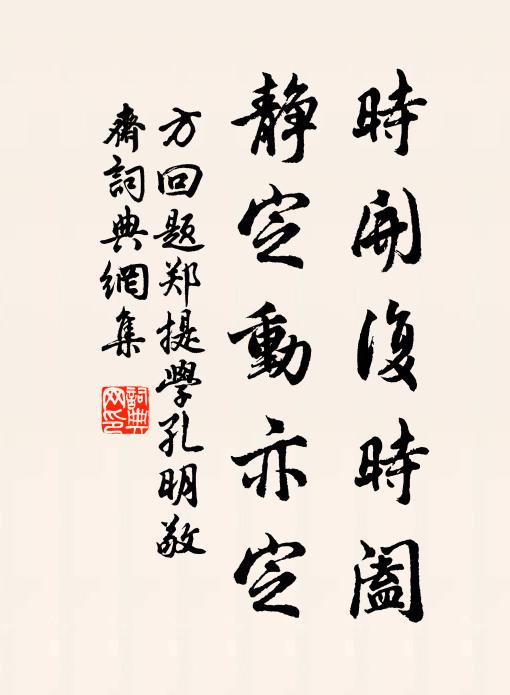 時開復時闔
静定動亦定
方回题郑提學孔明敬
齋詞典網集
詞典
网印